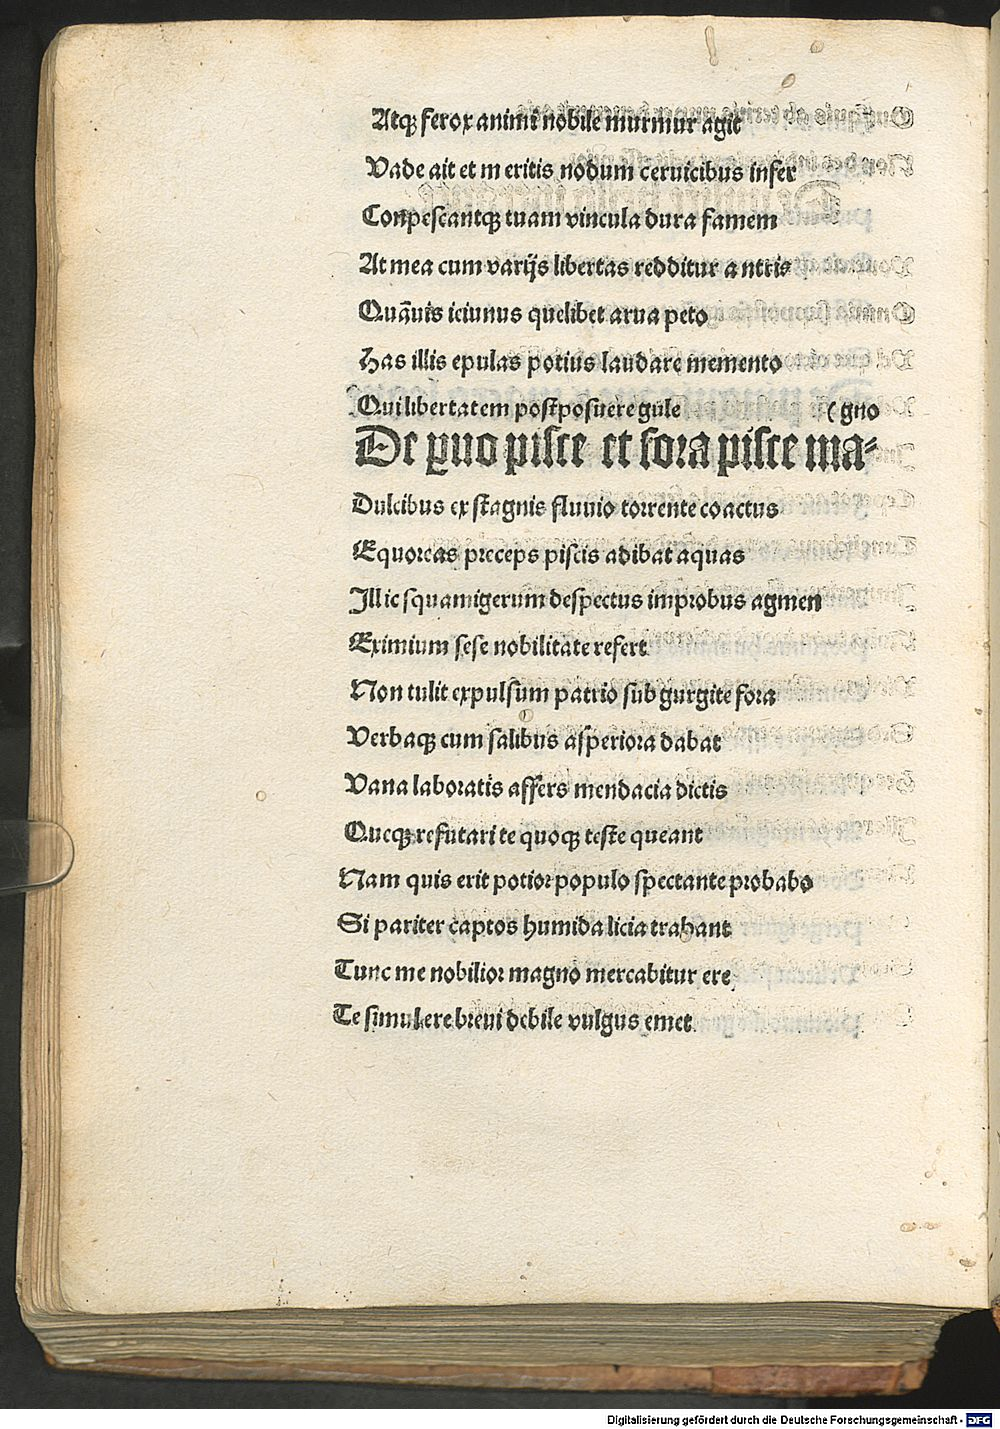 Atqꝫ ferox animi nobile murmur agit
Vade ait et m eritis nodum ceruicibus infer
Conpescantqꝫ tuam vincula dura famem
At mea cum varijs libertas redditur a ntris
Quãuis ieiunus quelibet arua peto
Has illis epulas potius laudare memento
Qui libertatem postposuere gule (gno
De ꝑuo pisce et fora pisce ma⸗
Dulcibus ex stagnis fluuio torrente coactus
Equoreas preceps piscis adibat aquas
Illic squamigerum despectus improbus agmen
Eximium sese nobilitate refert
Non tulit expulsum patrio sub gurgite fora
Verbaqꝫ cum salibus asperiora dabat
Vana laboratis affers mendacia dictis
Queqꝫ refutari te quoqꝫ teste queant
Nam quis erit potior populo spectante probabo
Si pariter captos humida licia trahant
Tunc me nobilior magno mercabitur ere
Te simul ere breui debile vulgus emet
Digitalisierung gefördert durch die Deutsche Forschungsgemeinschaft - DFG